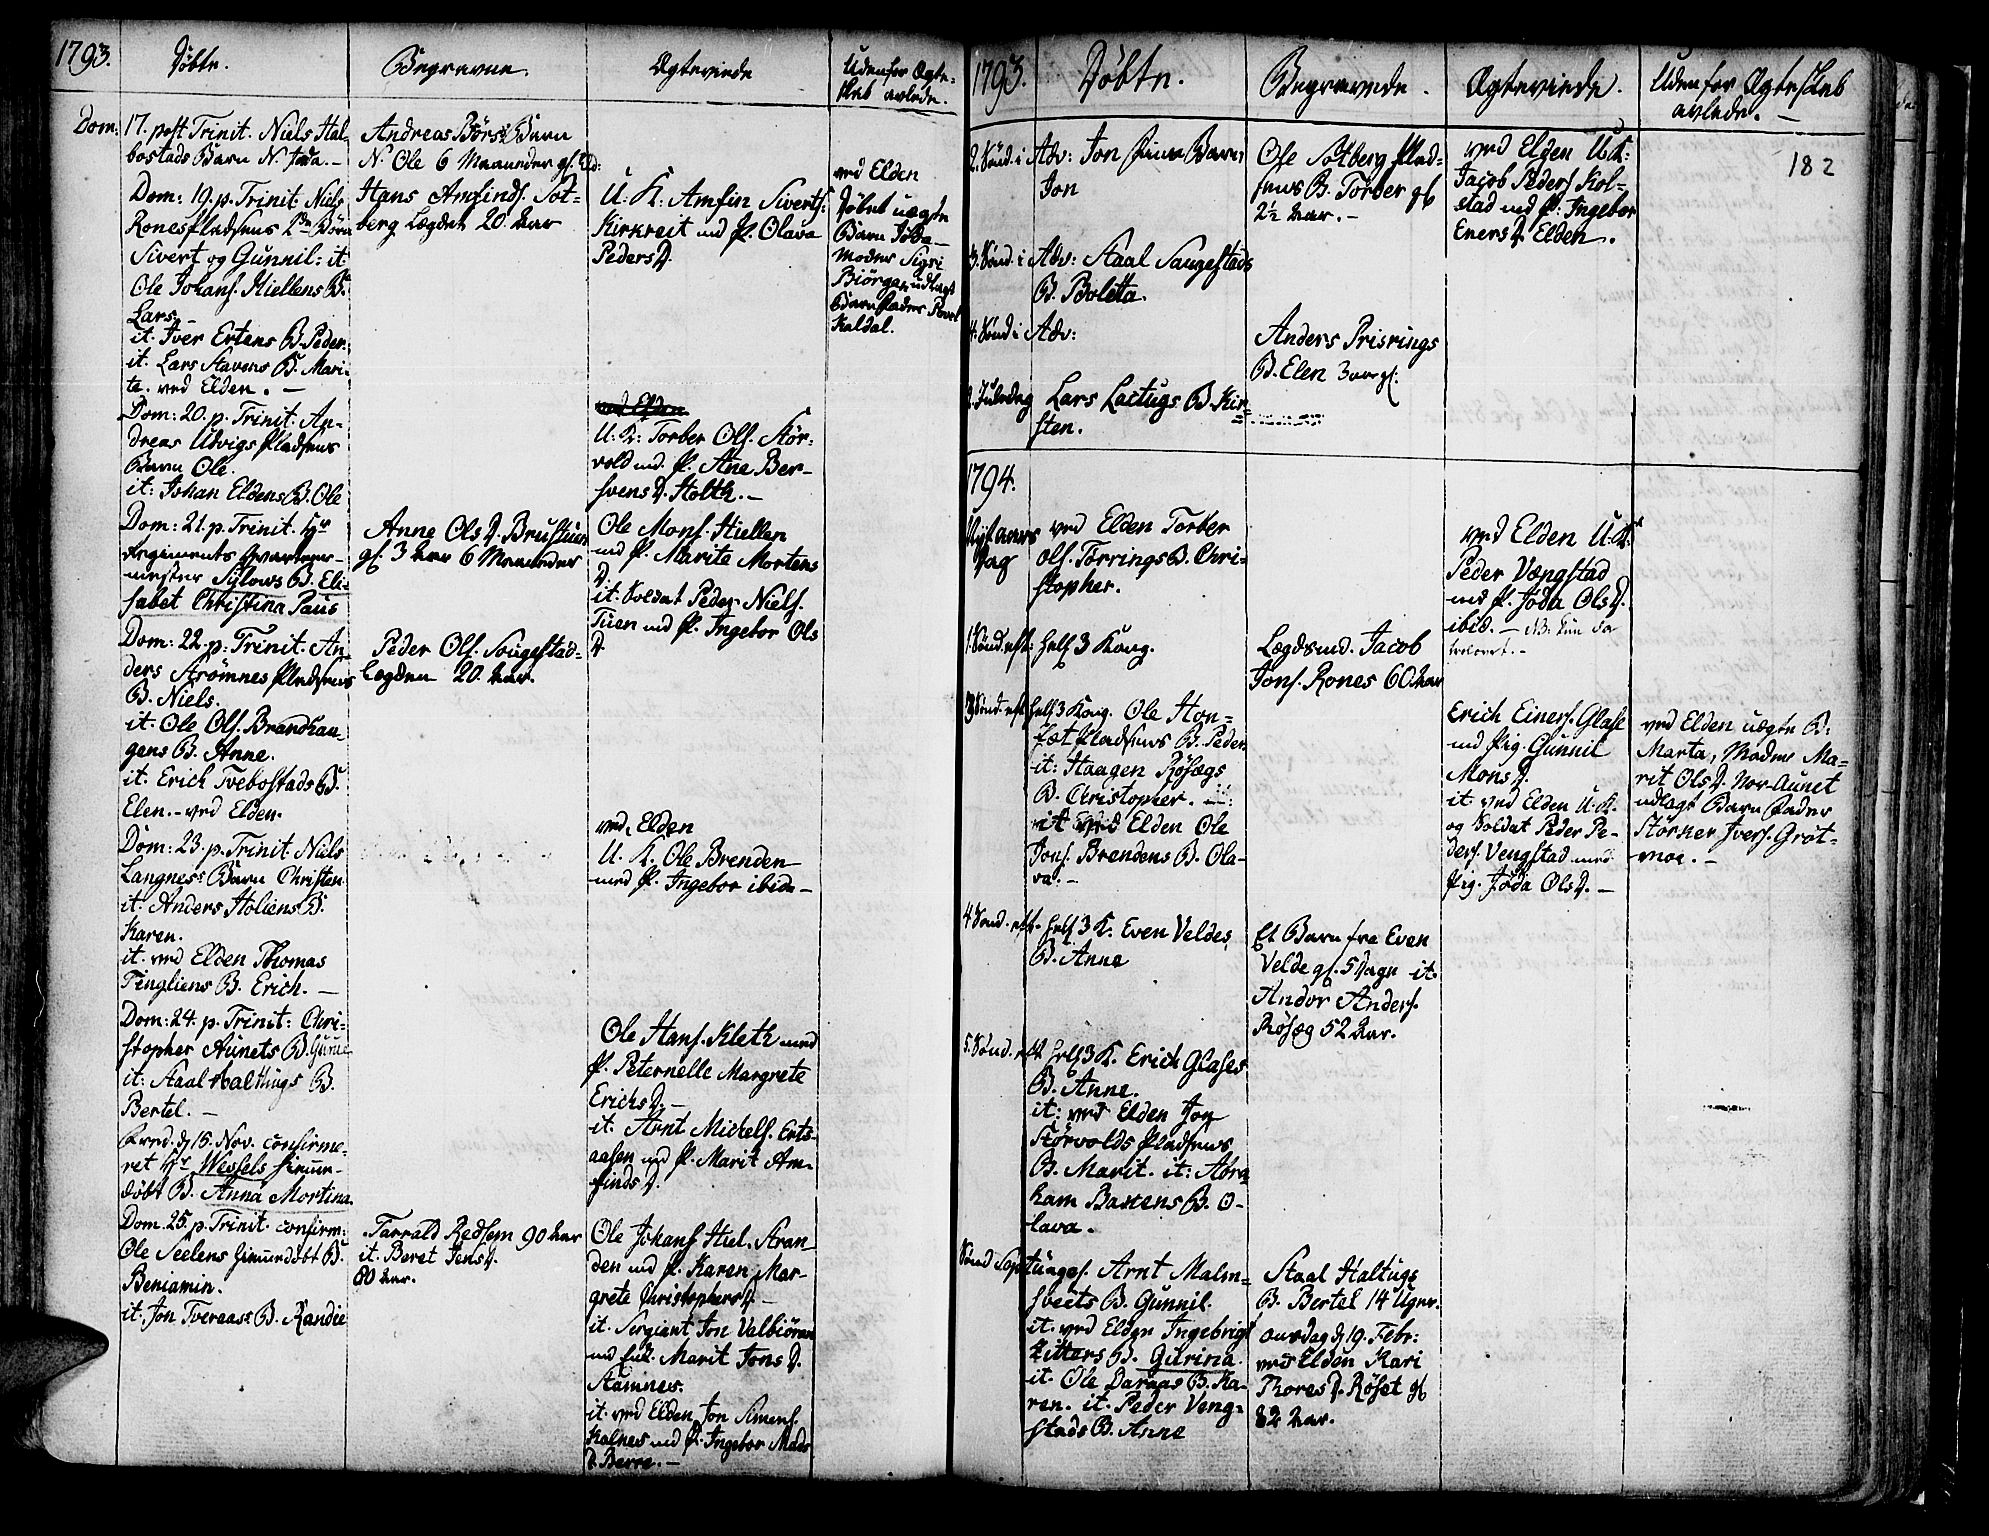 1793.
Døbte.
Begravne.
Ægteviede
Udenfor Ægte-
skab avlede.
Dom: 17. post Trinit. Niels Hal-
bostads Barn N. Joda. -
Dom: 19. p. Trinit. Niels
Rones Pladsens 2de Børn
Sivert og Gunnil: it:
Ole Johans. Hiellens B.
Lars. -
it. Iver Ertens B. Peder.
it. Lars Stavens B. Mari-
te. ved Elden. -
Dom: 20. p. Trinit. An-
dreas Utvigs Pladsens
Barn Ole.
it: Johan Eldens B. Ole
Dom: 21. p. Trinit. Hr
Regiments Qvarteer-
mester Sylows B. Eli-
sabet Christina Paus
Dom: 22. p. Trinit. An-
ders Strømnes Pladsens
B. Niels.
it: Ole Ols. Brandhau-
gens B. Anne.
it. Erich Tvebostads B.
Elen. - ved Elden.
Dom: 23. p. Trinit. Niels
Langness Barn Christen
it: Anders Holiens B.
Karen.
it. ved Elden Thomas
Tingliens B. Erich. -
Dom: 24. p. Trinit: Chri-
stopher Aunets B. Gurue
it: Staal Halthugs B.
Bertel. -
d. 15. Nov. confirme-
ret Hr Wessels hiemme-
døbt B. Anna Mortina
Dom. 25. p. Trinit. confirm:
Ole Seelens hiemmedøbt B.
Beniamin.
it. Jon Tveraass B. Randie
Andreas Børss Barn
N. Ole 6 Maaneder gl.
Hans Amfinds. Sot-
berg Lægdet 20. Aar
Anne Ols D. Brustuen
gl. 3 Aar 6 Maaneder
Peder Ols. Sougestad-
Lægden 20. Aar.
Tarrald Redsem 90 Aar
it. Beret Jens D.
80 Aar.
U. K: Amfin Siverts.
Kirkreit med P. Olava
Peders D.
ved Elden
U. K: Torber Ols. Stör-
vold med P. Ane Ber-
svens D. Holth. -
Ole Mons. Hiellen
med P. Marite Mortens
D.
it. Soldat Peder Niels.
Tüen med P. Ingebor Ols
D
ved Elden
U. K. Ole Brenden
med P. Ingebor ibid. -
Ole Hans. Kleth med
P. Peternelle Margrete
Erichs D. -
it. Arnt Michels. Erts-
aasen med P. Marit Am-
finds D.
Ole Johans. Hiel. Stran-
den med P. Karen Mar-
grete Christophers D. -
it. Sergiant Jon Valbiöran
med Enk. Marit Jons D.
Stamnes.
it. ved Elden Jon Simens.
Kalnes med P. Ingebor Mads
D. Berre. -
ved Elden
Døbet uægte
Barn Joda
Moder Sigri
Biörge, udlagt
Barnefader Povel
Kaldal.
1793.
Døbte.
Begravede.
Ægteviede.
Udenfor Ægteskab
avlede. -
182
2. Sönd. i Adv: Jon Barn
Jon
3. Sönd. i Adv: Staal Saugestads
B. Boletta.
4. Sönd. i Adv:
2. Juledag Lars Lactugs B. Kir-
sten.
Ole Sotberg Plad-
sens B. Torber gl
2½ Aar. -
Anders Prisrings
B. Elen 3 gl.
ved Elden U. K:
Jacob Peders. Kol-
stad med P. Ingebor
Eners D. Elden.
1794.
Nytaars
Dag
ved Elden Torber
Ols. Tørrings B. Chri-
stopher.
1. Sönd. eft: hell. 3 Kong.
3 Sönd. eft hell. 3 Kong. Ole Hon-
Pladsens B. Peder
it: Haagen Rösægs
B. Christopher.
it ved Elden Ole
Jons. Brendens B. Ola-
va. -
4 Sönd. eft. hell. 3 K. Even Veldes
B. Anne
5. Sönd. eft hell. 3 K. Erich Glases
B. Anne.
it: ved Elden Jon
Störvolds Pladsens
B. Marit. it: Abra-
ham Baxens B. O-
lava.
Sönd Septuages. Arnt Malm-
B. Gunnil.
it. ved Elden Ingebrigt
Kitters B. Gurina.
it. Ole Daraas B. Ka-
ren. it. Peder Veng-
stads B. Anne
Lægdsmd. Jacob
Jons. Rones 60 Aar
Et Barn fra Even
Velde gl. 5 Dage it.
Andor Anders.
Rösæg 52 Aar.
Staal Haltugs
B. Bertel 14 Uger.
onsdag d 19. Febr:
ved Elden Kari
Thores D. Röset gl
82 Aar.
ved Elden U. K.
Peder Vængstad
med P. Joda Ols D.
ibid. -
Erich Einers. Glase
med Pig. Gunnil
Mons D.
it. ved Elden U. K.
og Soldat Peder Pe-
ders. Vengstad med
Pig. Joda Ols D. -
ved Elden uægte B.
Marta, Moder Ma-
rit Ols D. Nor-Aunet
udlagt Barn Fader
Störker Ivers. Grøt-
moe. -